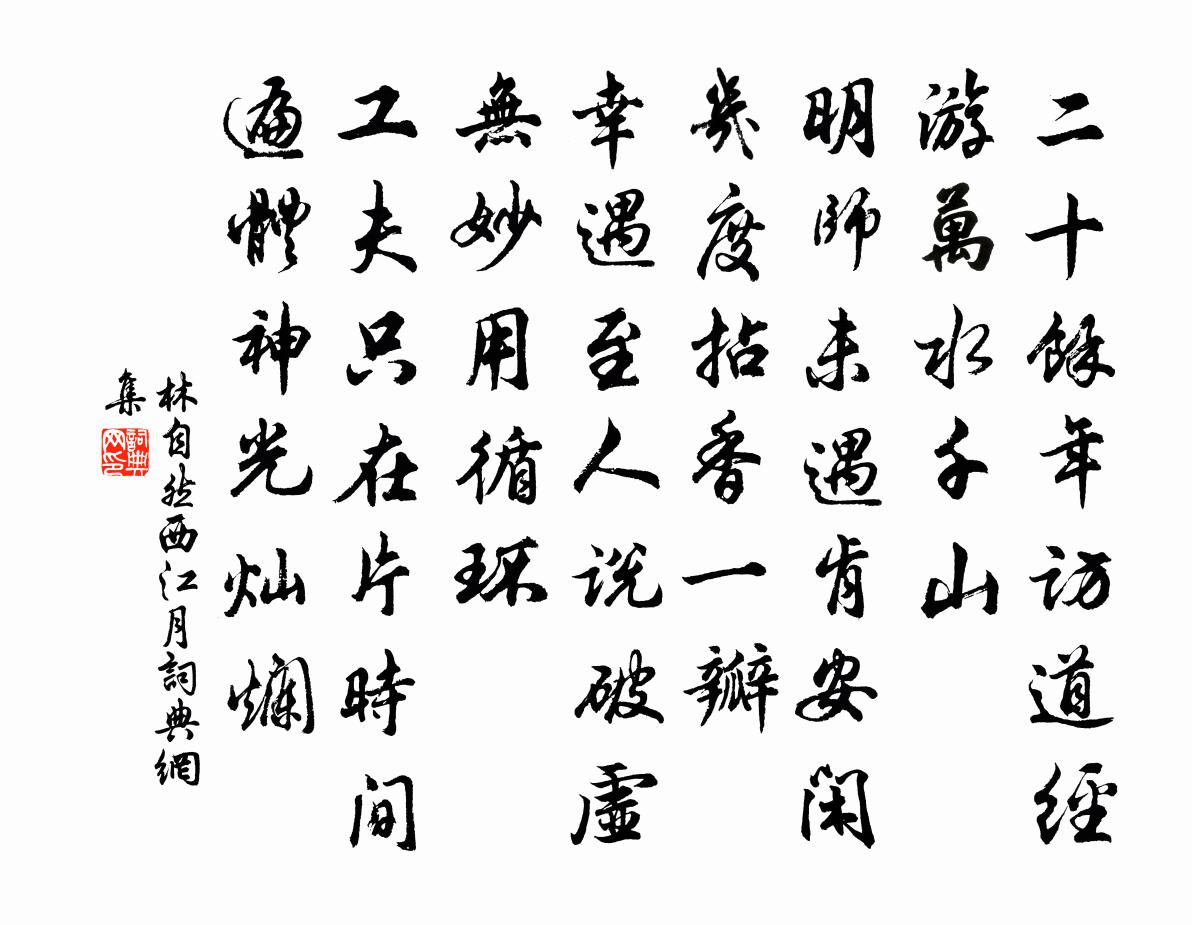 二十餘年訪道經
游萬水千山
明師未遇肯安閑
幾度拈香一瓣
幸遇至人説破虛
無妙用循環
工夫只在片時間
遍體神光灿爛
林自然西江月詞典網
集
詞典
网印